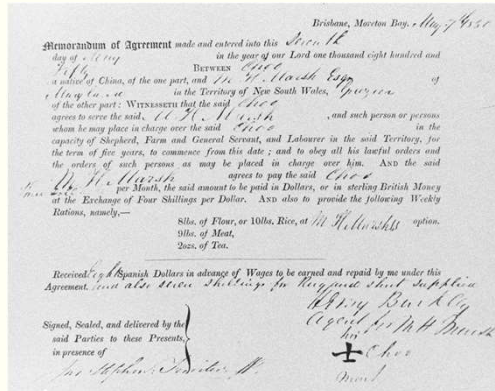 Brisbane, Moreton Bay, May 7th 1850
Memorandum of Agreement made and entered into this Seventh
day of May in the year of our Lord one thousand eight hundred and
Fifty BETWEEN Choo
a native of China, of the one part, and M H Marsh Esqr of
Maryland in the Territory of New South Wales, Grazier
of the other part: WITNESSETH that the said Choo
agrees to serve the said M H Marsh, and such person or persons
whom he may place in charge over the said Choo in the
capacity of Shepherd, Farm and General Servant, and Labourer in the said Territory, for
the term of five years, to commence from this date; and to obey all his lawful orders and
the orders of such persons as may be placed in charge over him. AND the said
M H Marsh agrees to pay the said Choo
per Month, the said amount to be paid in Dollars, or in sterling British Money
at the Exchange of Four Shillings per Dollar. AND also to provide the following Weekly
Rations, namely,—
8lbs. of Flour, or 10lbs. Rice, at M H Marsh's option.
9lbs. of Meat,
2ozs. of Tea.
Received Eight Spanish Dollars in advance of Wages to be earned and repaid by me under this
Agreement. and also seven shillings for Rug and shirt supplied
Agent for M H Marsh
Signed, Sealed, and delivered by the
said Parties to these Presents,
in presence of
his
+ Choo
mark